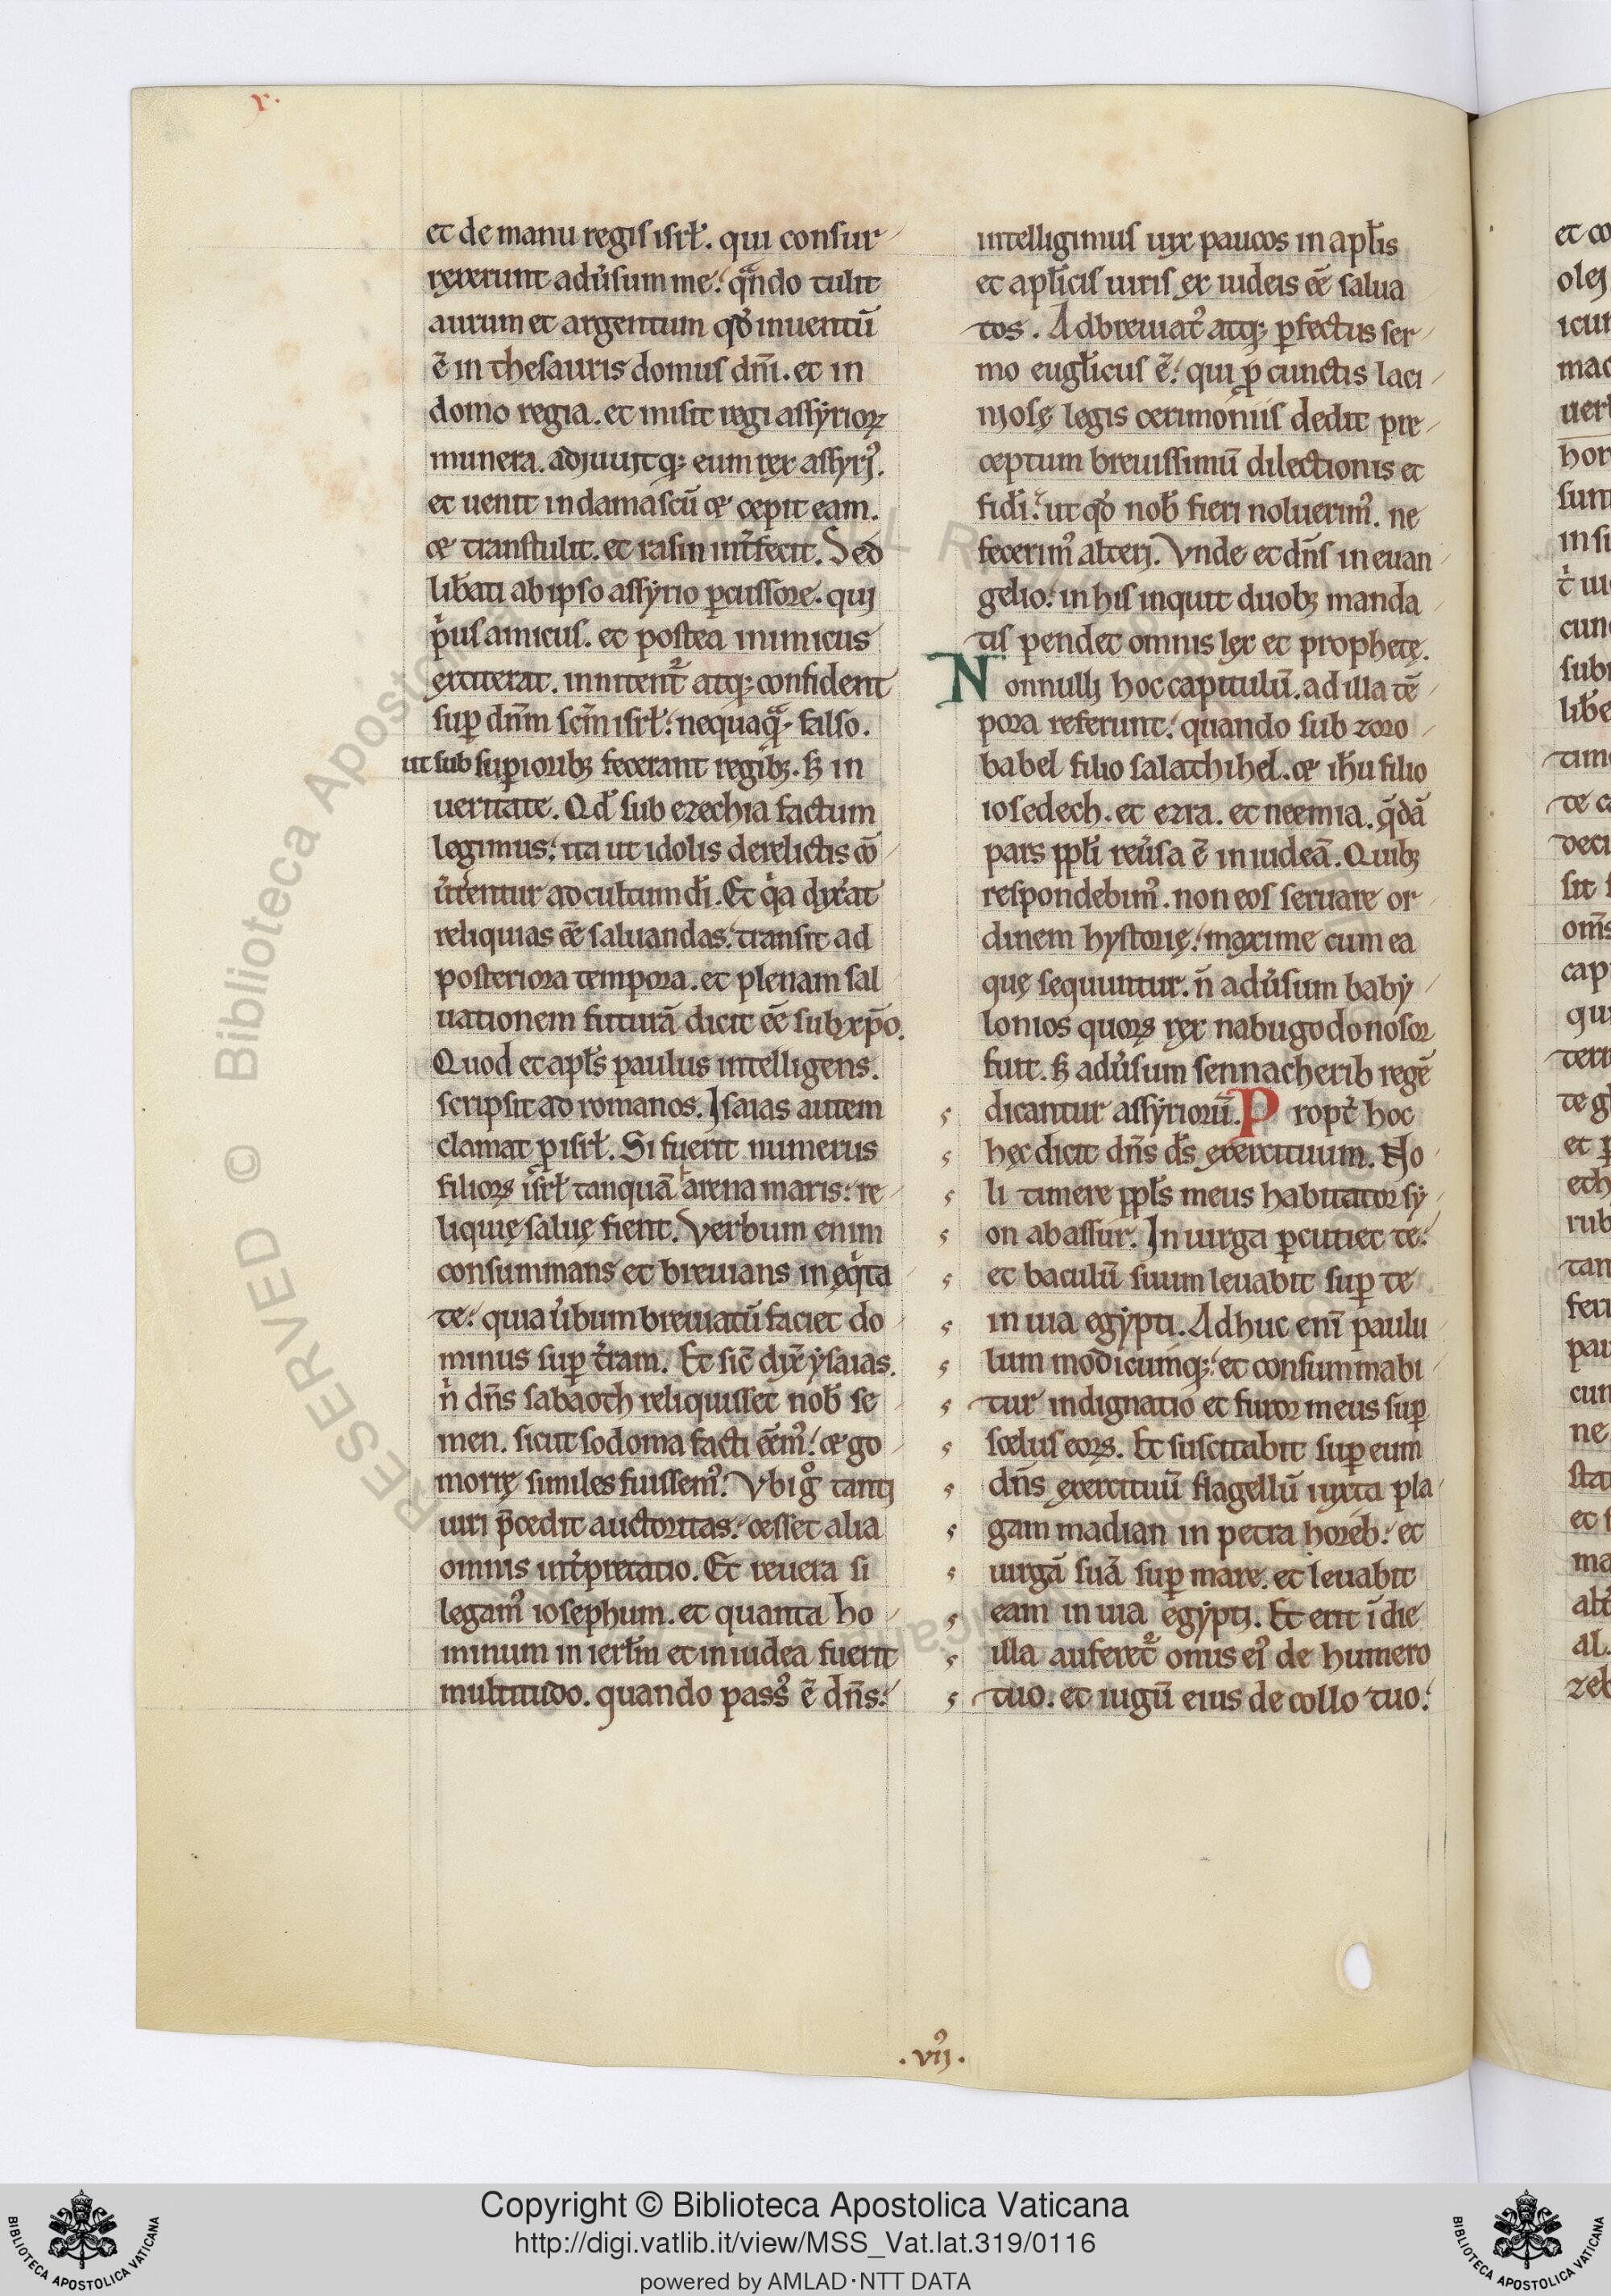 r.
et de manu regis isrł. qui consur
rexerunt adu̓sum me. qͣndo tulit
aurum et argentum qd̓ inuentū
ē in thesauris domus dn̄i. et in
domo regia. et misit regi assẏrioꝝ
munera. adjuuitq; eum rex assyrj᷒.
et uenit in damascū & cepit eam.
& transtulit. et rasin int̓fecit. Sed
lib̓ati ab ipso assẏrio ꝑcussore. quj
p̓us amicus. et postea inimicus
extiterat. innitent᷑ atq; confident
suꝑ dn̄m sc̄m isrł. nequaqͣ falso.
ut sub suꝑiorib; fecerant regib;. sꝫ in
ueritate. Qd̓ sub ezechia factum
legimus. ita ut idolis derelictis cō
u̓t̓entur ad cultum di̓. Et qͥa dyx̓at
reliquias eē̄ saluandas. transit ad
posteriora tempora. et plenam sal
uationem futurā dicit eē̄ sub xp̄o.
Quod et apłs paulus intelligens.
scripsit ad romanos. Isaias autem
clamat ꝑ isrł. Si fuerit numerus
filioꝝ isrł tanquā arena maris. re
liquię saluę fient. Verbum enim
consummans et breuians in eqͥta
te. quia u̓bum breuiatū faciet do
minus suꝑ t̓ram. Et sic̄ dyx̄ ẏsaias.
nͥ dn̄s sabaoth reliquisset nob̓ se
men. sicut sodoma facti eēm᷒. & go
morrę similes fuissem᷒. Vbi gͦ tantj
uiri p̄cedit auctoritas. cesset alia
omnis int̓pretatio. Et reuera si
legam᷒ iosephum. et quanta ho
minum in ierłm et in iudea fuerit
multitudo. quando pass᷒ ē dn̄s.
intelligimus uix paucos in apłis
et apłicis uiris ex iudeis eē̄ salua
tos. Adbreuiat᷒ atq; ꝑfectus ser
mo eugłicus ē. qui ꝓ cunctis laci
njosę legis cerimoniis dedit pre
ceptum breuissimū dilectionis et
fidi̓. ut qd̓ nob̓ fieri noluerim᷒. ne
fecerim᷒ alterj. Vnde et dn̄s in euan
gelio. in his inquit duob; manda
tis pendet omnis lex et prophetę.
Nonnullj hoc capitulū. ad illa tē
pora referunt. quando sub zoro
babel filio salathihel. & ih̓u filio
iosedech. et ezra. et neemia. qͣ̄dā
pars ppłi reu̓sa ē in iudeā. Quib;
respondebim᷒. non eos seruare or
dinem hystorię. maxime cum ea
quę sequuntur. n̄ adu̓sum babẏ
lonios quoꝝ rex nabugodonosor
fuit. sꝫ adu̓sum sennacherib regē
dicantur assẏriorū. Propt̓ hoc
hęc dicit dn̄s ds̄ exercituum. No
li timere ppłs meus habitator sẏ
on ab assur. In uirga ꝑcutiet te.
et baculū suum leuabit suꝑ te
in uia egẏpti. Adhuc enī paulu
lum modicumq;. et consummabi
tur indignatio et furor meus suꝑ
scelus eoꝝ. Et suscitabit suꝑ eum
dn̄s exercituū flagellū iuxta pla
gam madian in petra horeb. et
uirgā suā suꝑ mare. et leuabit
eam in uia egẏpti. Et erit ī die
illa auferet᷑ onus ei᷒ de humero
tuo. et iugū eius de collo tuo.
.vij᷒.
Copyright © Biblioteca Apostolica Vaticana
http://digi.vatlib.it/view/MSS_Vat.lat.319/0116
powered by AMLAD·NTT DATA
BIBLIOTECA APOSTOLICA VATICANA
BIBLIOTECA APOSTOLICA VATICANA